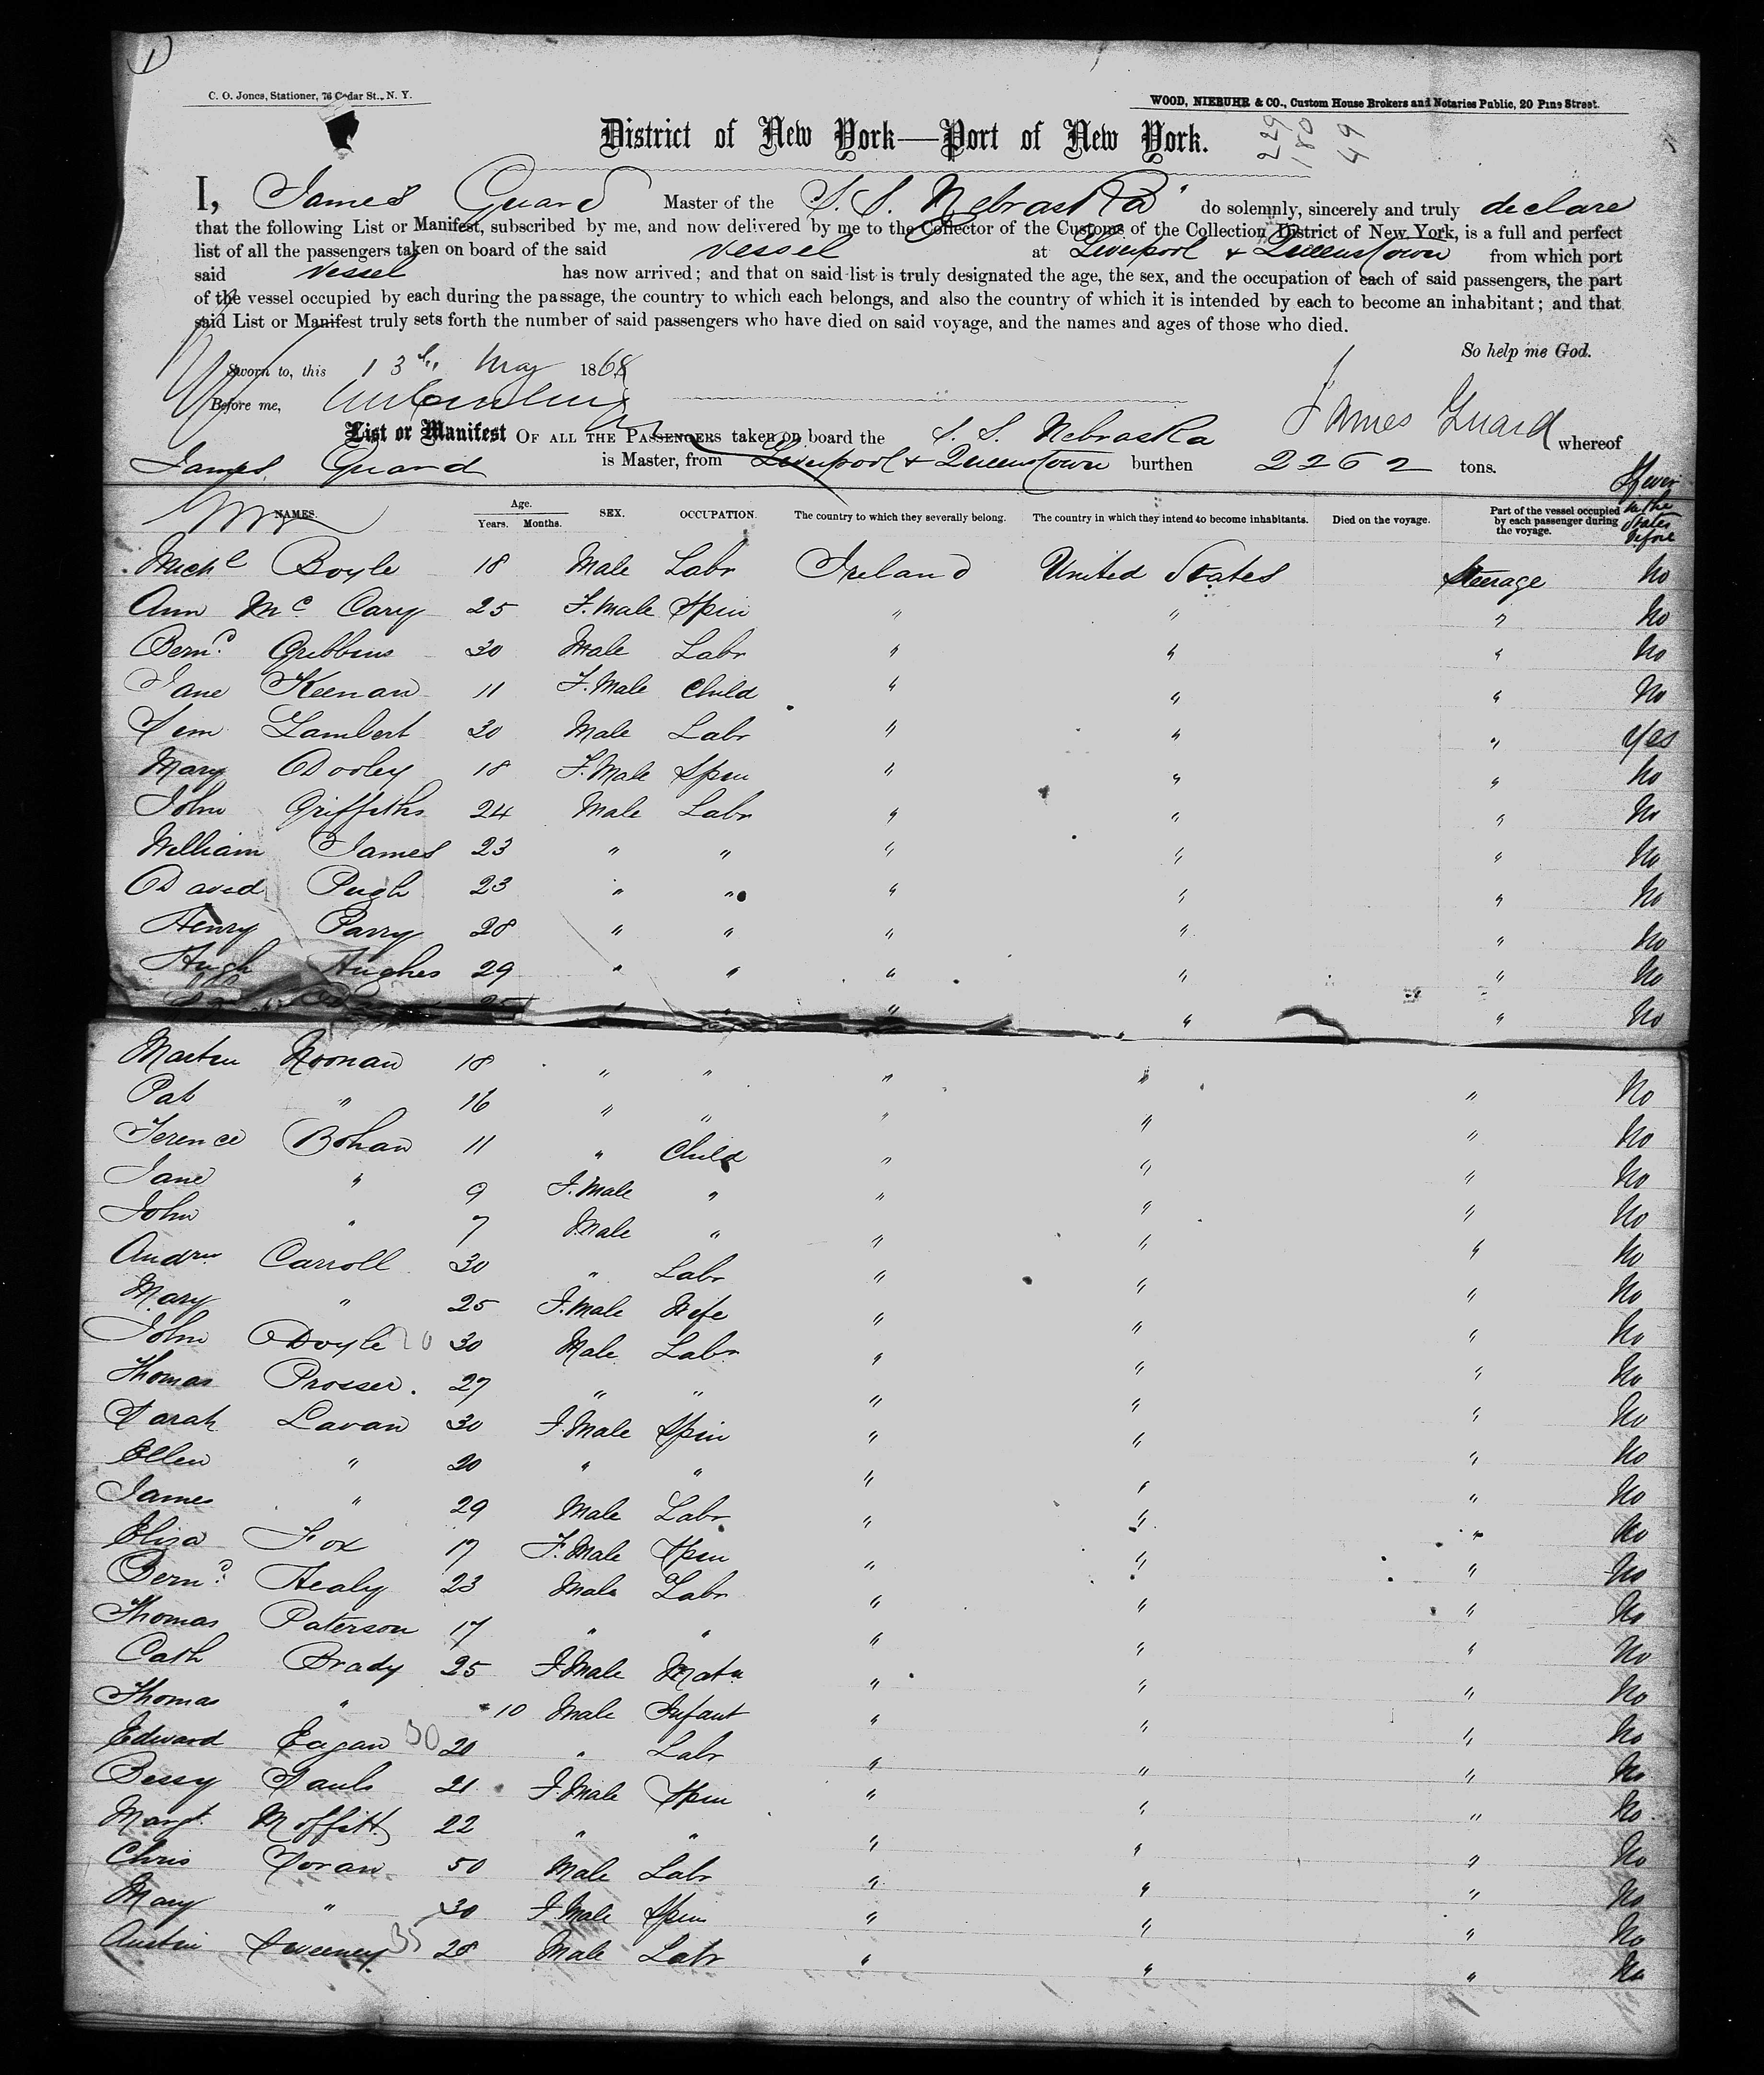 1
C. O. Jones, Stationer, 76 Cedar St., N. Y.
WOOD, NIEBUHR & CO., Custom House Brokers and Notaries Public, 20 Pine Street.
District of New York—Port of New York.
229
180
49
I, James Guard Master of the S. S. Nebraska" do solemnly, sincerely and truly declare
that the following List or Manifest, subscribed by me, and now delivered by me to the Collector of the Customs of the Collection District of New York, is a full and perfect
list of all the passengers taken on board of the said vessel at Liverpool & Queenstown from which port
said vessel has now arrived; and that on said list is truly designated the age, the sex, and the occupation of each of said passengers, the part
of the vessel occupied by each during the passage, the country to which each belongs, and also the country of which it is intended by each to become an inhabitant; and that
said List or Manifest truly sets forth the number of said passengers who have died on said voyage, and the names and ages of those who died.
So help me God.
Sworn to, this 13th May 1868
Before me,
James Guard
List or Manifest OF ALL THE PASSENGERS taken on board the S. S. Nebraska whereof
James Guard is Master, from Liverpool & Queenstown burthen 2262 tons.
NAMES. Age. Years. Months. SEX. OCCUPATION. The country to which they severally belong. The country in which they intend to become inhabitants. Died on the voyage. Part of the vessel occupied by each passenger during the voyage. If ever in the States before
Michl Boyle 18 Male Labr Ireland United States Steerage No
Ann Mc Cary 25 F.Male Spin " " " No
Bernd Gribbins 30 Male Labr " " " No
Jane Keenan 11 F.Male Child " " " No
Sem Lambert 30 Male Labr " " " Yes
Mary Dooley 18 F.Male Spin " " " No
John Griffiths 24 Male Labr " " " No
William James 23 " " " " " No
David Pugh 23 " " " " " No
Henry Parry 28 " " " " " No
Hugh Hughes 29 " " " " " No
25 " " " " " No
Martin Noonan 18 " " " " " No
Pat " 16 " " " " " No
Terence Bohan 11 " Child " " " No
Jane " 9 F.Male " " " " No
John " 7 Male " " " " No
Andrw Carroll 30 " Labr " " " No
Mary " 25 F.Male Wife " " " No
John Doyle 20 30 Male Labr " " " No
Thomas Prosser. 27 " " " " " No
Sarah Lavan 30 F.Male Spin " " " No
Ellen " 20 " " " " " No
James " 29 Male Labr " " " No
Eliza Fox 17 F.Male Spin " " " No
Bernd Healy 23 Male Labr " " " No
Thomas Paterson 17 " " " " " No
Cath Brady 25 F.Male Matn " " " No
Thomas " " 10 Male Infant " " " No
Edward Eagan 30 20 " Labr " " " No
Bessy Sauls 21 F.Male Spin " " " No
Margt. Moffitt 22 " " " " " No
Chris Doran 50 Male Labr " " " No
Mary " 30 F.Male Spin " " " No
Austin Sweeney 35 28 Male Labr " " " No